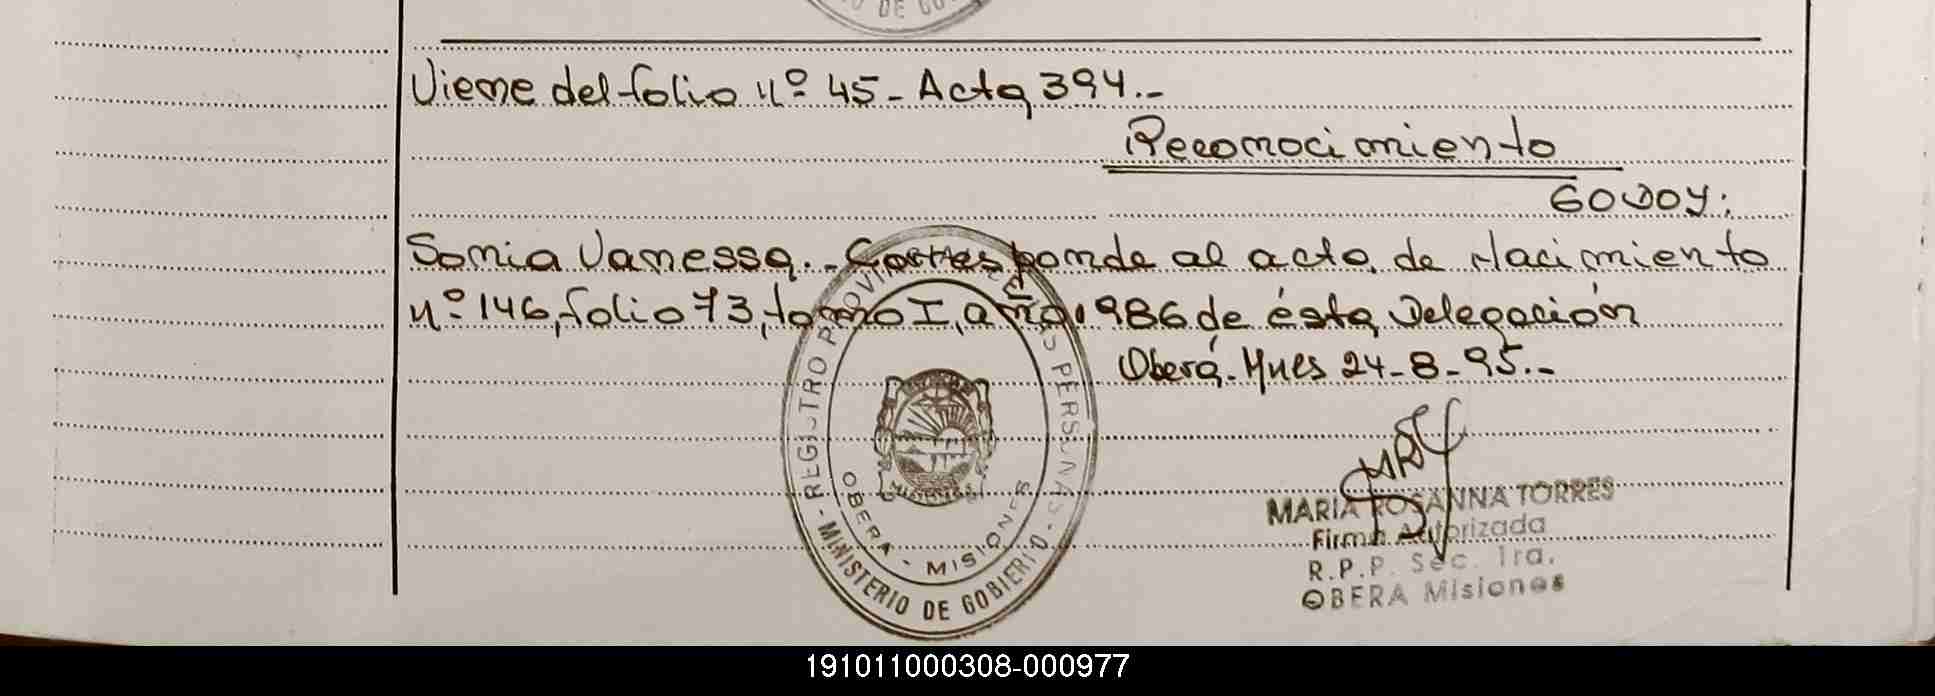 Viene del folio nº 45- Acta 394.-
Reconocimiento
GODOY:
Sonia Vanessa.- Corresponde al acta de Nacimiento
nº 146, folio 73, tomo I, año 1986 de ésta Delegación
Oberá- Mnes 24-8-95.-
REGISTRO PROVINCIAL DE LAS PERSONAS
OBERA - MISIONES
MINISTERIO DE GOBIERNO
MISIONES
MARIA ROSANNA TORRES
Firma Autorizada
R.P.P. Sec. 1ra.
OBERA Misiones
191011000308-000977